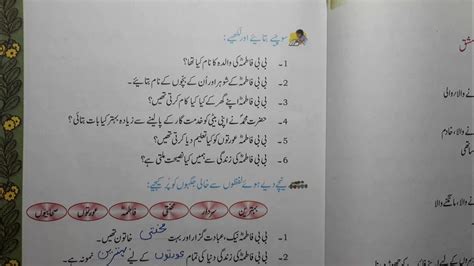 سوچیے بتائیے اور لکھیے:
1۔ بی بی فاطمہؓ کی والدہ کا نام کیا تھا؟
2۔ بی بی فاطمہؓ کے شوہر اور اُن کے بچّوں کے نام بتائیے۔
3۔ بی بی فاطمہؓ اپنے گھر کے کیا کیا کام کرتی تھیں؟
4۔ حضرت محمدؐ نے اپنی بیٹی کو خدمت گار کے پالینے سے زیادہ بہتر کیا بات بتائی؟
5۔ بی بی فاطمہؓ عورتوں کو کیا تعلیم دیا کرتی تھیں؟
6۔ بی بی فاطمہؓ کی زندگی سے ہمیں کیا نصیحت ملتی ہے؟
نیچے دیے ہوئے لفظوں سے خالی جگہوں کو پُر کیجیے:
بہترین سردار محنتی فاطمہؓ عورتوں صحابیوں
1۔ بی بی فاطمہؓ نیک، عبادت گزار اور بہت محنتی خاتون تھیں۔
2۔ بی بی فاطمہؓ کی زندگی دنیا کی تمام عورتوں کے لیے بہترین نمونہ ہے۔
مشق
نے والا، روالی
نے والا، خادم
ساتھی
نے والا، مانگنے والا